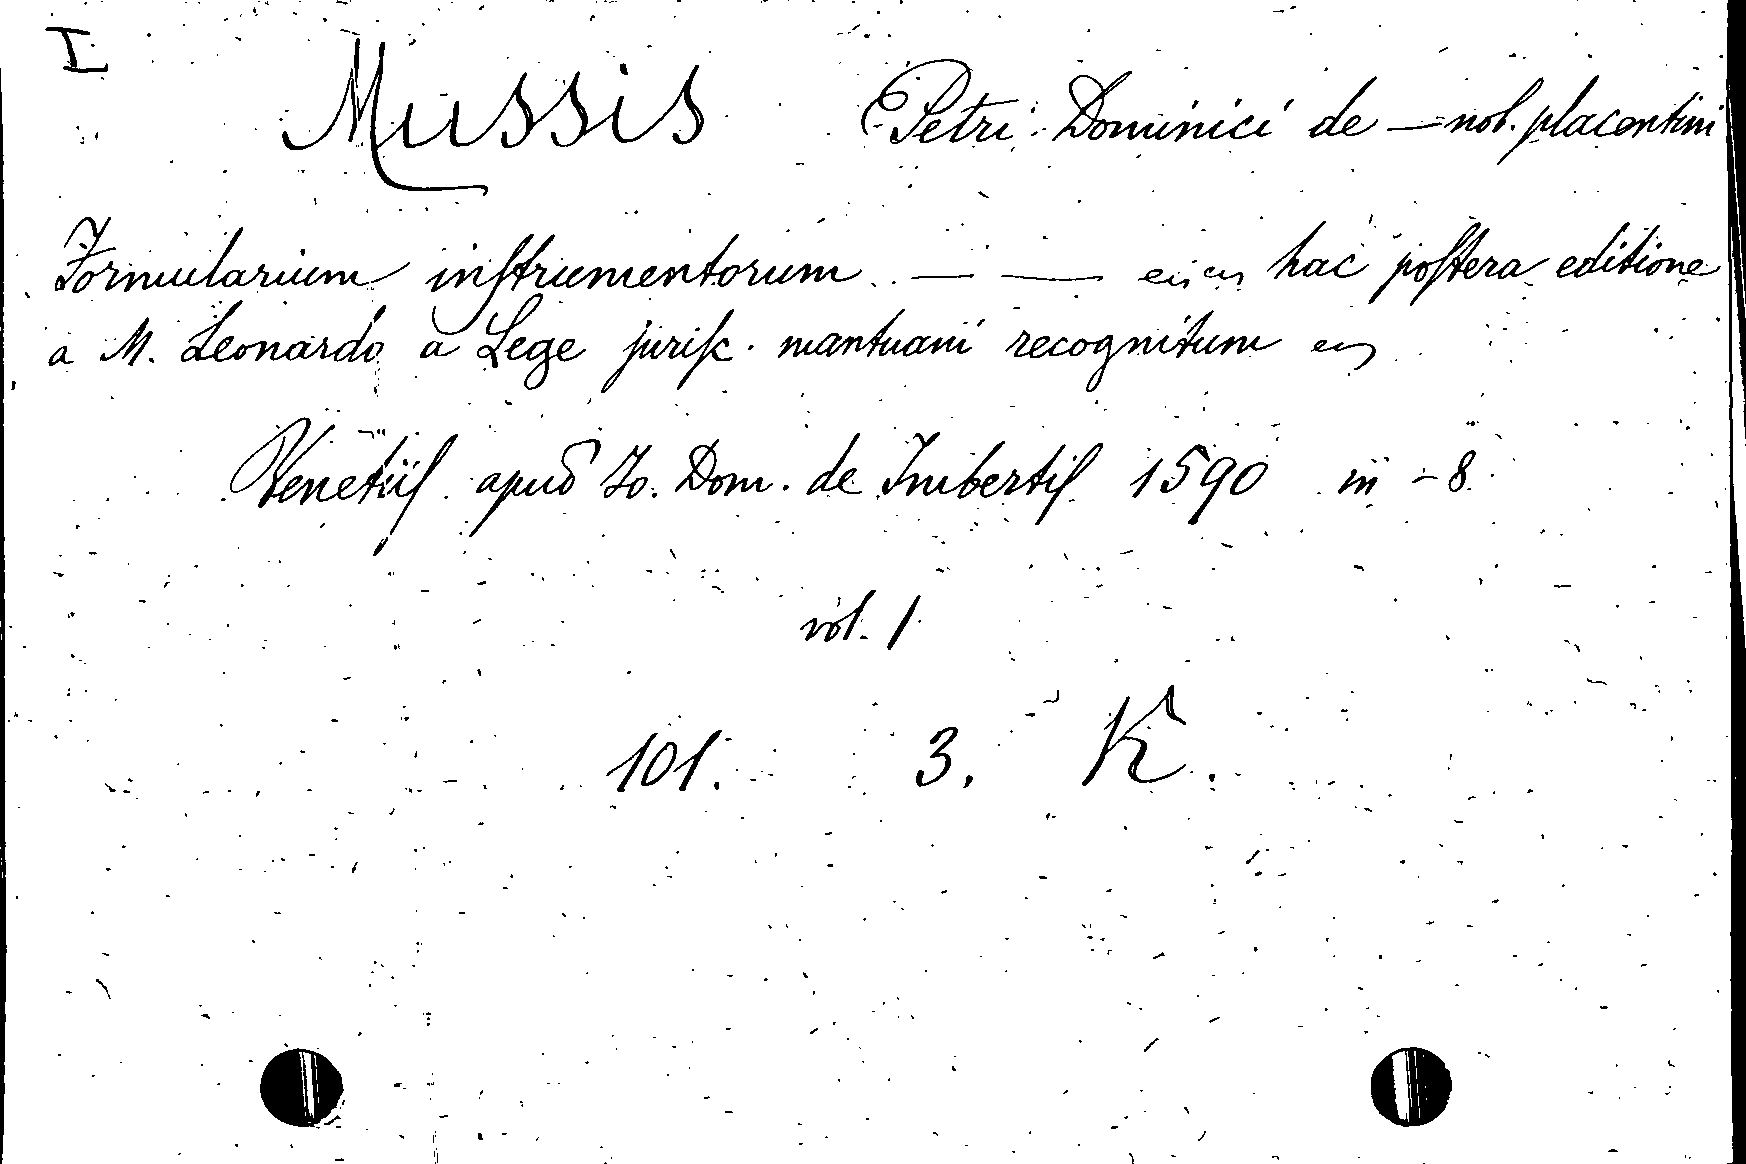 I
Mussis Petri Dominici de — nob. placentini
Formularium instrumentorum — — hac postera editione
a M. Leonardo a Lege jurisc. mantuani recognitum
Venetiis apud Io. Dom. de Imbertis 1590 in - 8
vol. 1
101. 3. K.